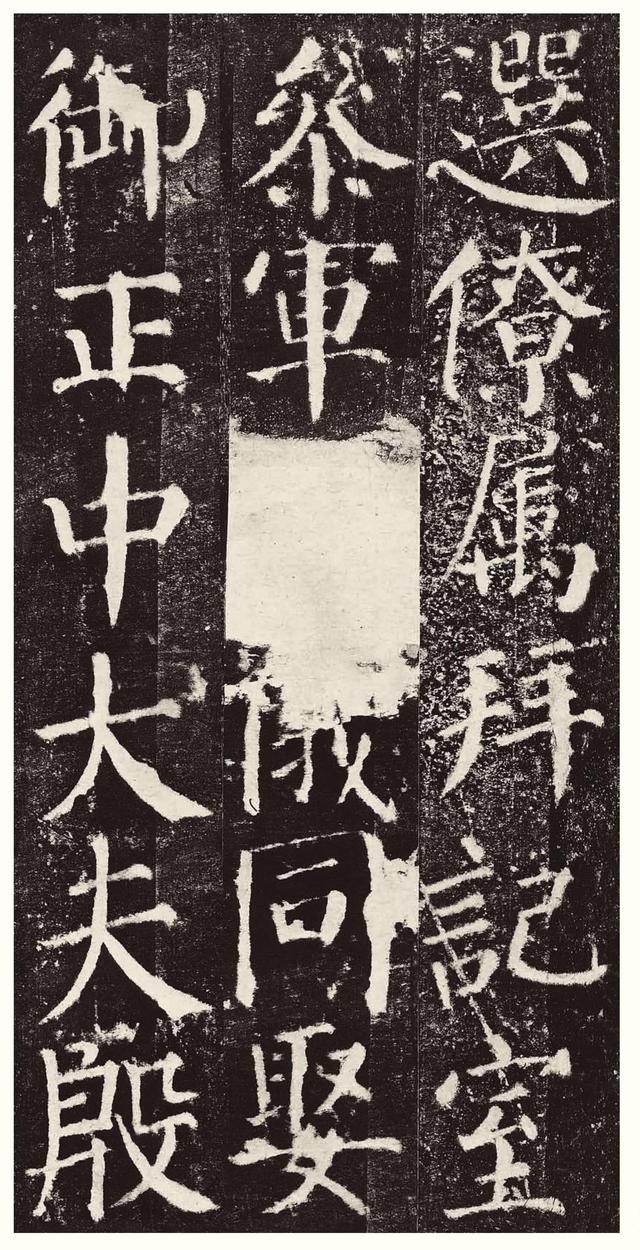 選僚属拜記室
叅軍俄同娶
御正中大夫殷